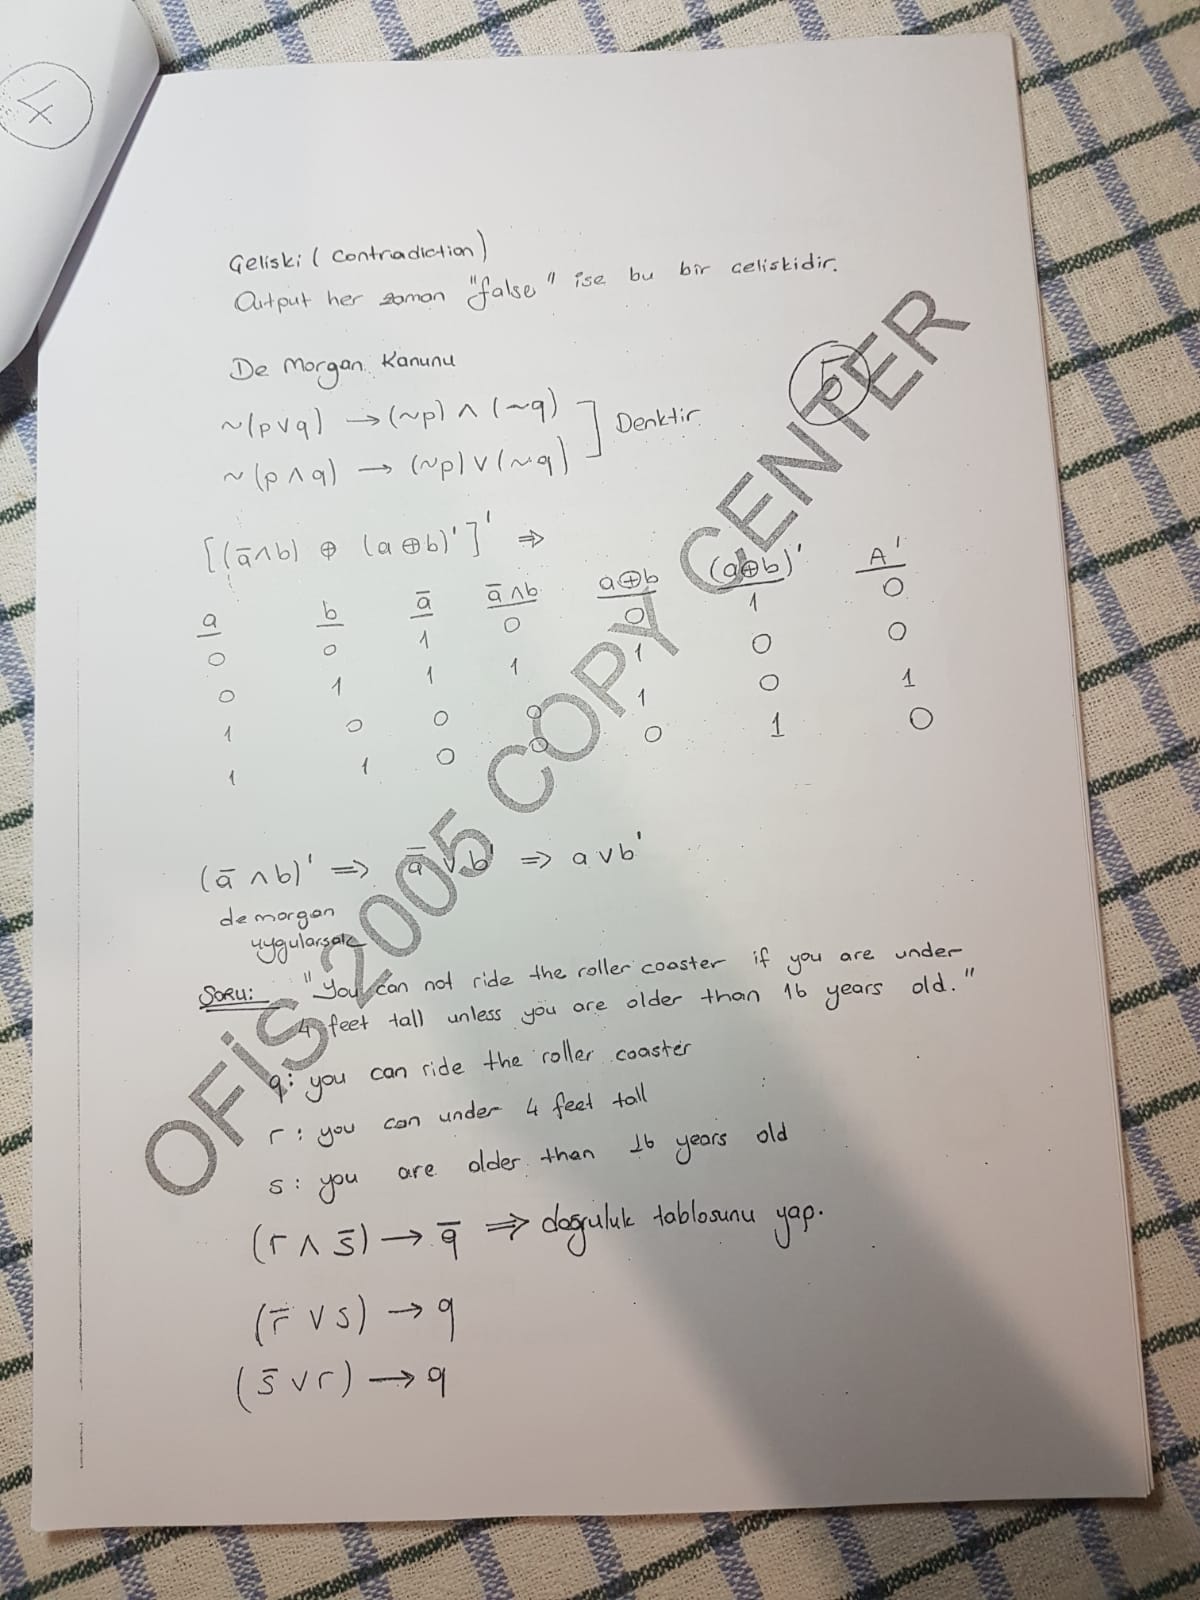 4
Çelişki (Contradiction)
Output her zaman "false" ise bu bir çelişkidir.
5
De Morgan Kanunu
~(p∨q) → (~p) ∧ (~q)
~(p∧q) → (~p) ∨ (~q) ] Denktir
[(ā∧b) ⊕ (a⊕b)']' ⇒
a b ā ā∧b a⊕b (a⊕b)' A'
0 0 1 0 0 1 0
0 1 1 1 1 0 0
1 0 0 0 1 0 1
1 1 0 0 0 1 0
(ā∧b)' ⇒ a̿ ∨ b' ⇒ a∨b'
de morgan
uygularsak
SORU: "You can not ride the roller coaster if you are under
4 feet tall unless you are older than 16 years old."
q: you can ride the roller coaster
r: you can under 4 feet tall
s: you are older than 16 years old
(r ∧ s̄) → q̄ ⇒ doğruluk tablosunu yap.
(r̄ ∨ s) → q
(s̄ ∨ r) → q
OFİS 2005 COPY CENTER